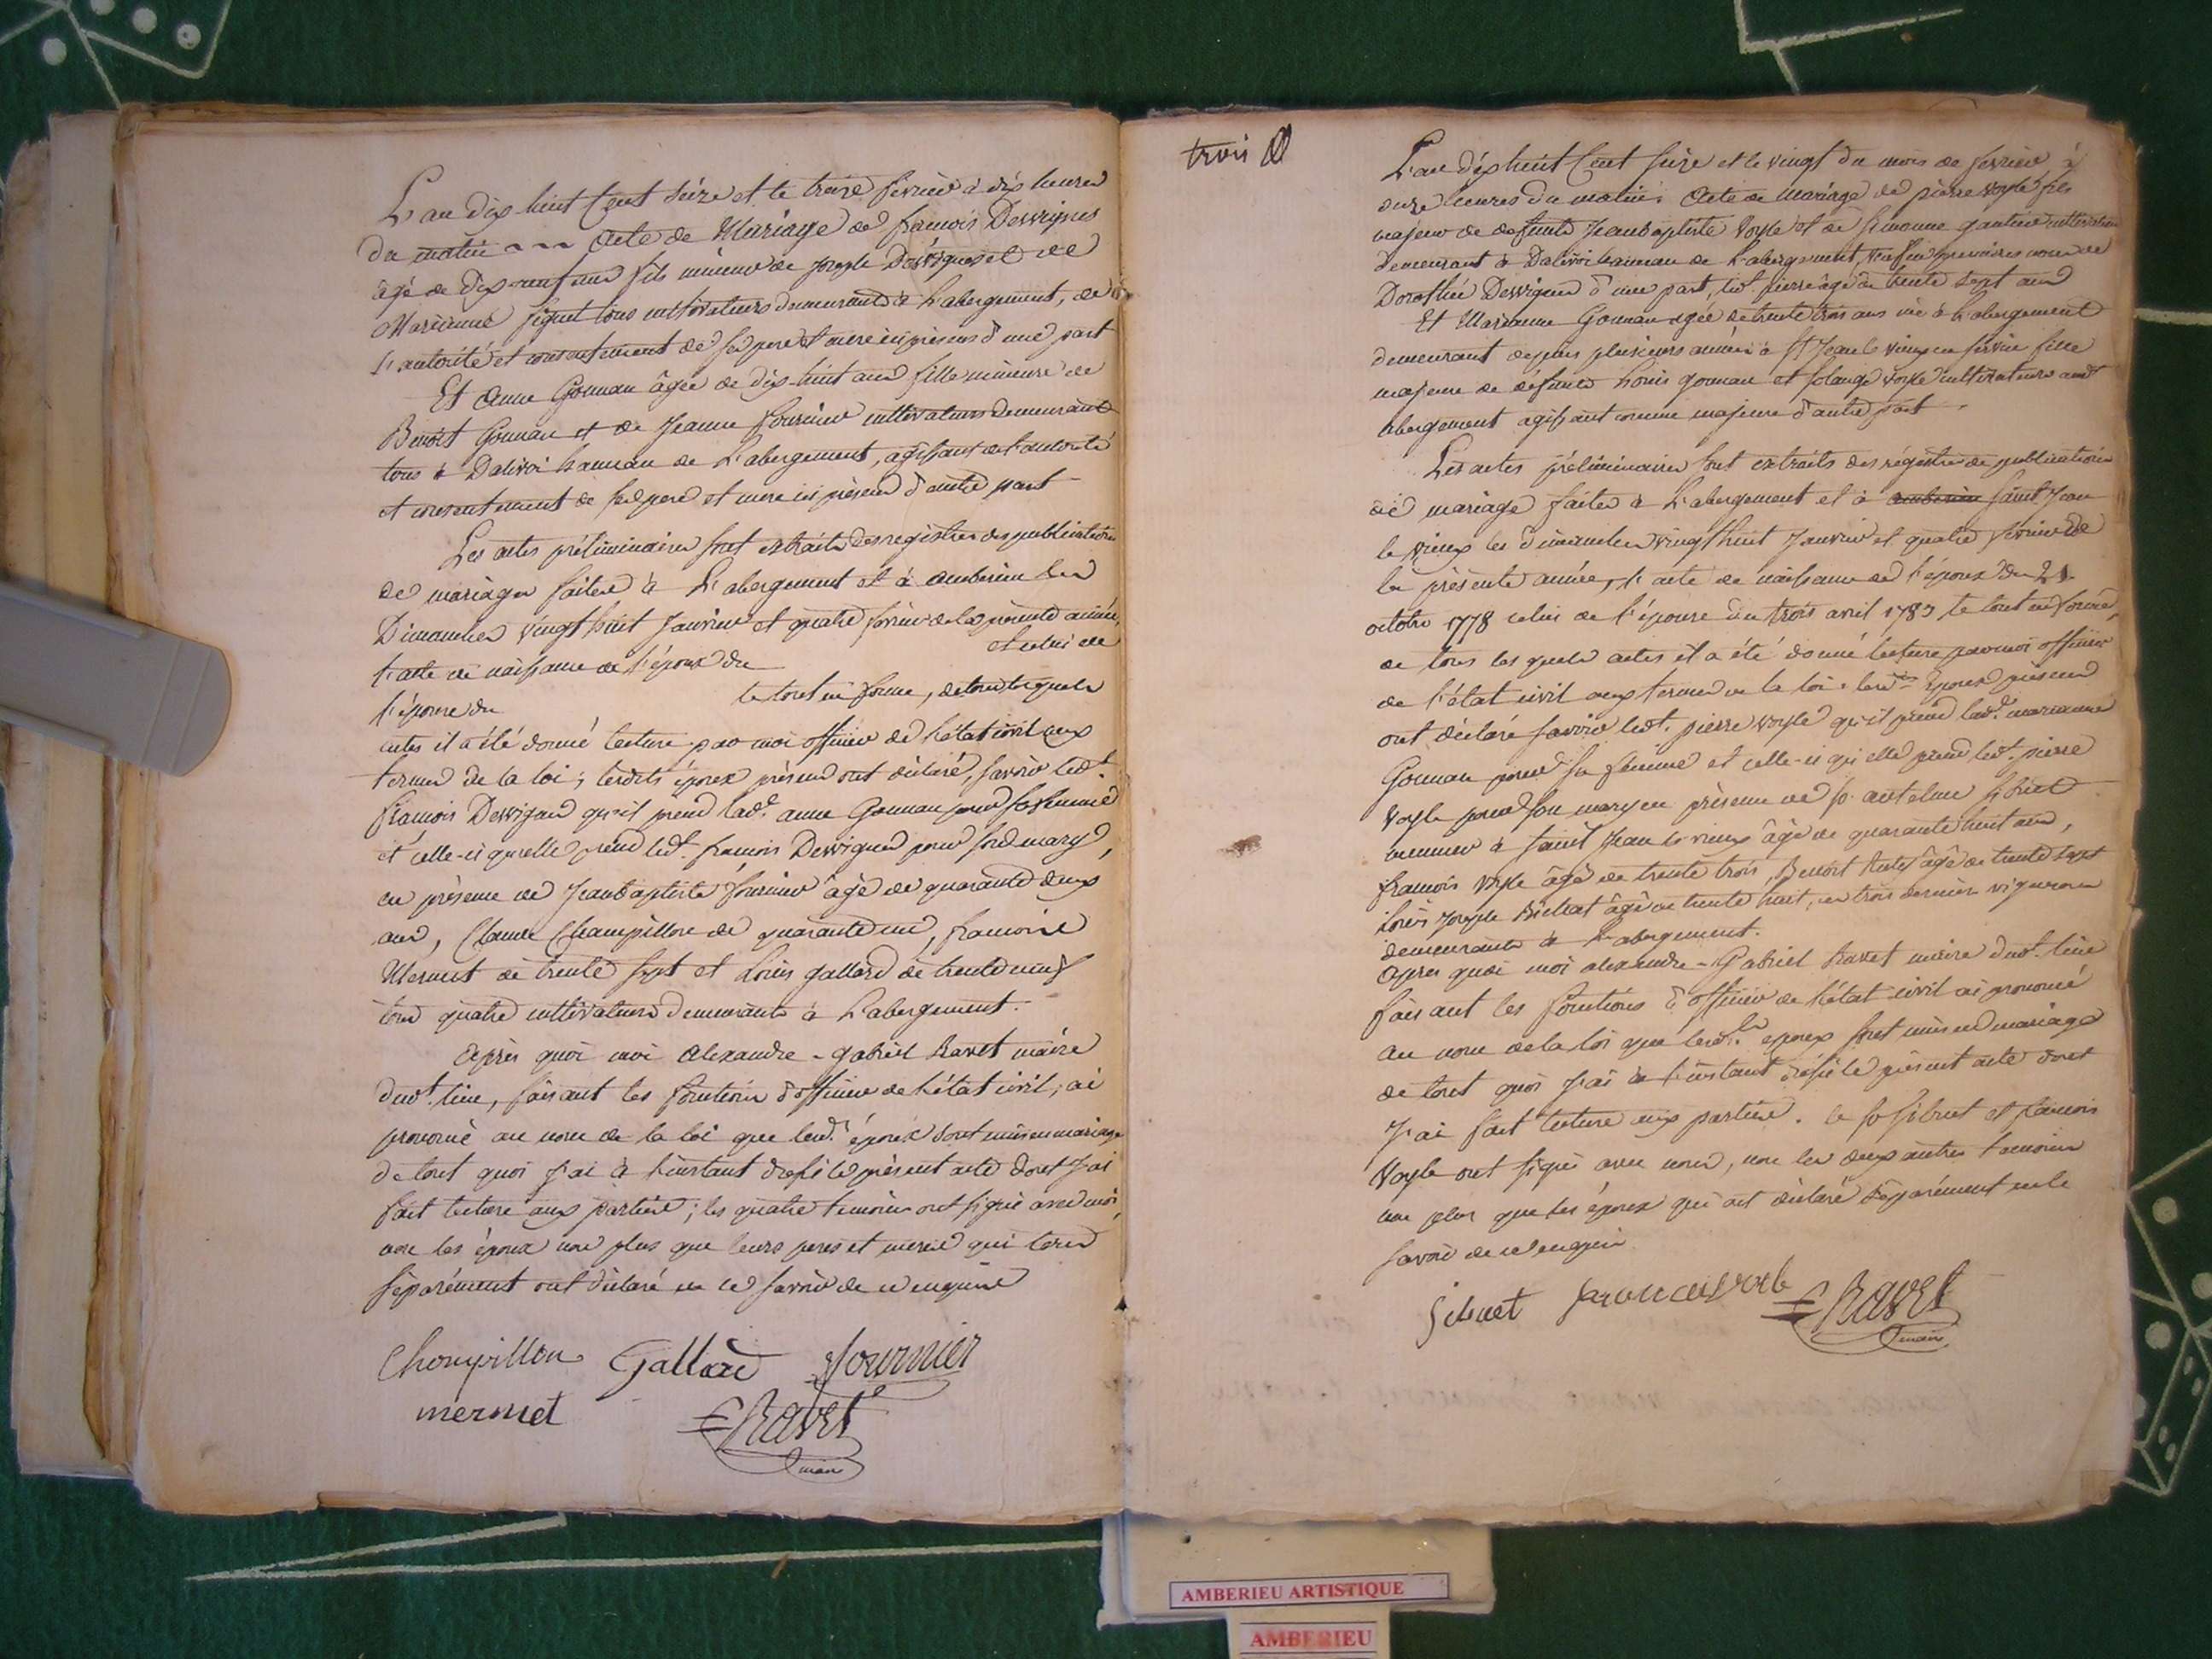 L'an dix huit Cent seize et le treize fevrier à dix heures
du matin ~~~ Acte de Mariage de françois Dervignes
âgé de dix-neuf ans fils mineur de Joseph Dervignes et de
Marianne figuet tous cultivateurs demeurants à L'abergement, de
l'autorité et consentement de ses pere et mere ici présens d'une part
Et Anne Gonnan âgée de dix-huit ans fille mineure de
Benoit Gonnan et de Jeanne fournier cultivateurs demeurants
tous à Dalivoi hameau de L'abergement, agissant de l'autorité
et consentement de ses pere et mere ici présens d'autre part
Les actes préliminaires sont extraits des registres des publications
de mariages faites à L'abergement et à amberieu les
Dimanches vingt huit Janvier et quatre fevrier de la présente année,
l'acte de naissance de l'époux du et celui de
l'épouse du le tout en forme, de tous lesquels
actes il a été donné lecture par moi officier de l'état civil aux
termes de la loi, lesdits époux présens ont déclaré, savoir led.t
françois Dervignes qu'il prend lad.e anne Gonnan pour sa femme
et celle-ci qu'elle prend led.t françois Dervignes pour son mary,
en présence de Jeanbaptiste fournier âgé de quarante deux
ans, Claude Champillon de quarante un, françois
Mermet de trente sept et Louis gallard de trente neuf
tous quatre cultivateurs demeurants à L'abergement.
Après quoi moi Alexandre-gabriel Ravet maire
dud.t lieu, faisant les fonctions d'officier de l'état civil, ai
prononcé au nom de la loi que lesd.ts époux sont unis en mariage
de tout quoi J'ai à l'instant dressé le présent acte dont J'ai
fait lecture aux parties; les quatre temoins ont signé avec moi,
non les époux non plus que leurs peres et meres qui tous
séparément ont déclaré ne le savoir de ce enquis
Champillon Gallard fournier
mermet Ravet
maire
trois
L'an dix huit Cent seize et le vingt du mois de fevrier à
onze heures du matin. Acte de Mariage de pierre voyle fils
majeur de defunts Jeanbaptiste Voyle et de Simonne gautier cultivateur
demeurant à Dalivoi hameau de L'abergement, veuf en premieres noces de
Dorothée Dervignes d'une part, led.t pierre âgé de trente sept ans
Et Marianne Gonnan agée de trente trois ans née à L'abergement
demeurant depuis plusieurs années à St Jean le vieux en service fille
majeure de défunts Louis gonnan et solange voyle cultivateurs aud.t
abergement agissant comme majeure d'autre part.
Les actes préliminaires sont extraits des régistres de publications
de mariage faites à L'abergement et à amberieu saint Jean
le vieux les dimanches vingt huit Janvier et quatre fevrier de
la présente année, l'acte de naissance de l'époux du 21
octobre 1778 celui de l'épouse du trois avril 1783, le tout en forme,
de tous les quels actes il a été donné lecture par moi officier
de l'état civil aux termes de la loi. lesd.ts époux présens
ont déclaré savoir led.t pierre voyle qu'il prend lad.e marianne
Gonnan pour sa femme et celle-ci qu'elle prend led.t pierre
voyle pour son mary en présence de s.r antelme sibuet
meunier à saint Jean le vieux âgé de quarante huit ans,
françois voyle âgé de trente trois, Benoit âgé de trente sept
Louis Joseph Bichat âgé de trente huit, ces trois derniers vignerons
demeurants à L'abergement.
Après quoi moi alexandre-Gabriel Ravet maire dud.t lieu
faisant les fonctions d'officier de l'état civil ai prononcé
au nom de la loi que lesd.ts époux sont unis en mariage
de tout quoi J'ai à l'instant dressé le présent acte dont
J'ai fait lecture aux parties. le s.r sibuet et françois
Voyle ont signé avec nous, non les deux autres temoins
non plus que les époux qui ont déclaré séparément ne le
savoir de ce enquis
Sibuet francois voile Ravet
maire
AMBERIEU ARTISTIQUE
AMBERIEU